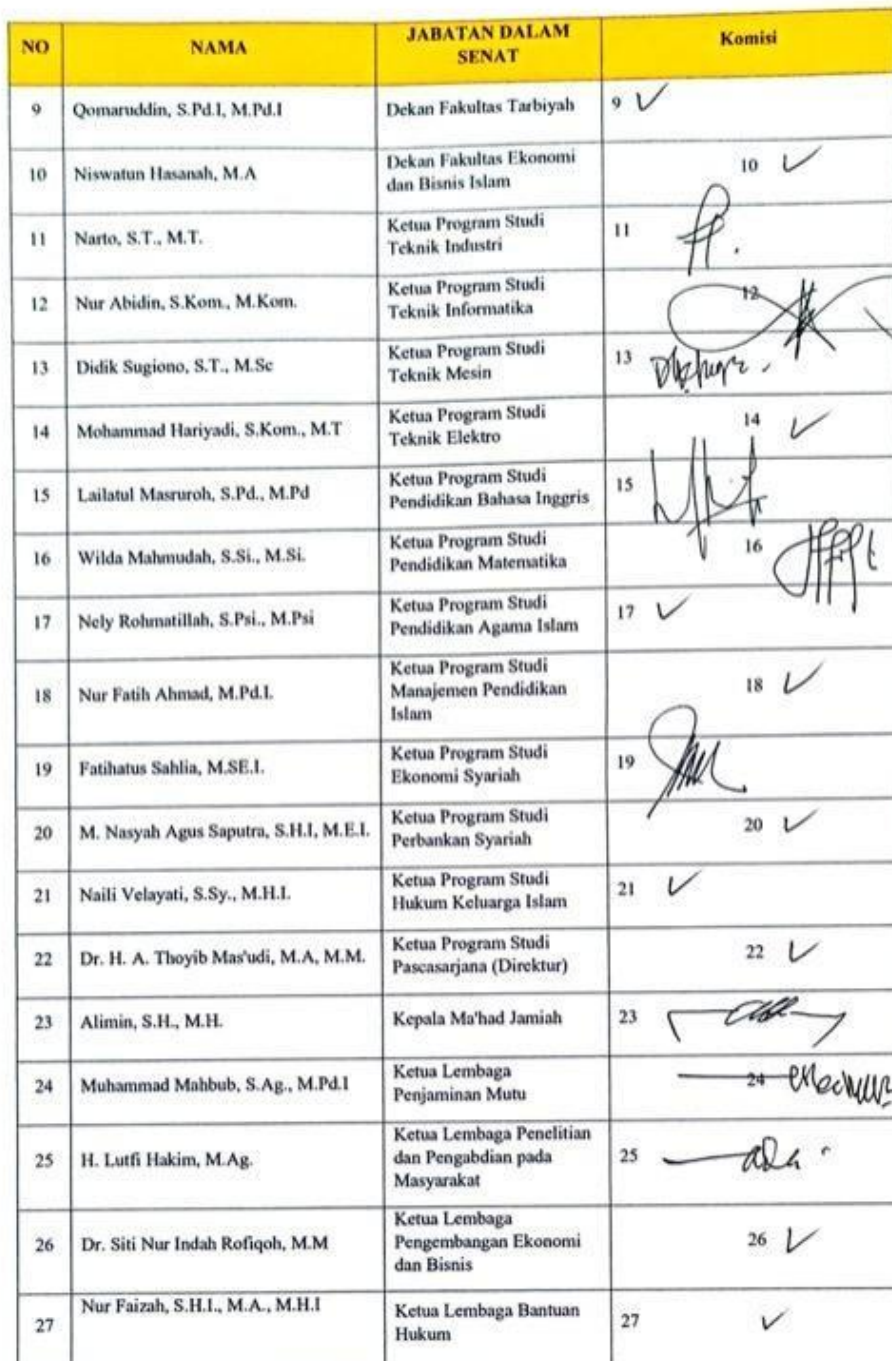 NO NAMA JABATAN DALAM SENAT Komisi
9 Qomaruddin, S.Pd.I, M.Pd.I Dekan Fakultas Tarbiyah 9
10 Niswatun Hasanah, M.A Dekan Fakultas Ekonomi dan Bisnis Islam 10
11 Narto, S.T., M.T. Ketua Program Studi Teknik Industri 11
12 Nur Abidin, S.Kom., M.Kom. Ketua Program Studi Teknik Informatika 12
13 Didik Sugiono, S.T., M.Sc Ketua Program Studi Teknik Mesin 13
14 Mohammad Hariyadi, S.Kom., M.T Ketua Program Studi Teknik Elektro 14
15 Lailatul Masruroh, S.Pd., M.Pd Ketua Program Studi Pendidikan Bahasa Inggris 15
16 Wilda Mahmudah, S.Si., M.Si. Ketua Program Studi Pendidikan Matematika 16
17 Nely Rohmatillah, S.Psi., M.Psi Ketua Program Studi Pendidikan Agama Islam 17
18 Nur Fatih Ahmad, M.Pd.I. Ketua Program Studi Manajemen Pendidikan Islam 18
19 Fatihatus Sahlia, M.SE.I. Ketua Program Studi Ekonomi Syariah 19
20 M. Nasyah Agus Saputra, S.H.I, M.E.I. Ketua Program Studi Perbankan Syariah 20
21 Naili Velayati, S.Sy., M.H.I. Ketua Program Studi Hukum Keluarga Islam 21
22 Dr. H. A. Thoyib Mas'udi, M.A, M.M. Ketua Program Studi Pascasarjana (Direktur) 22
23 Alimin, S.H., M.H. Kepala Ma'had Jamiah 23
24 Muhammad Mahbub, S.Ag., M.Pd.I Ketua Lembaga Penjaminan Mutu 24
25 H. Lutfi Hakim, M.Ag. Ketua Lembaga Penelitian dan Pengabdian pada Masyarakat 25
26 Dr. Siti Nur Indah Rofiqoh, M.M Ketua Lembaga Pengembangan Ekonomi dan Bisnis 26
27 Nur Faizah, S.H.I., M.A., M.H.I Ketua Lembaga Bantuan Hukum 27